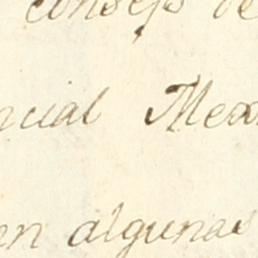 consejo de
ncial Mex
en algunas